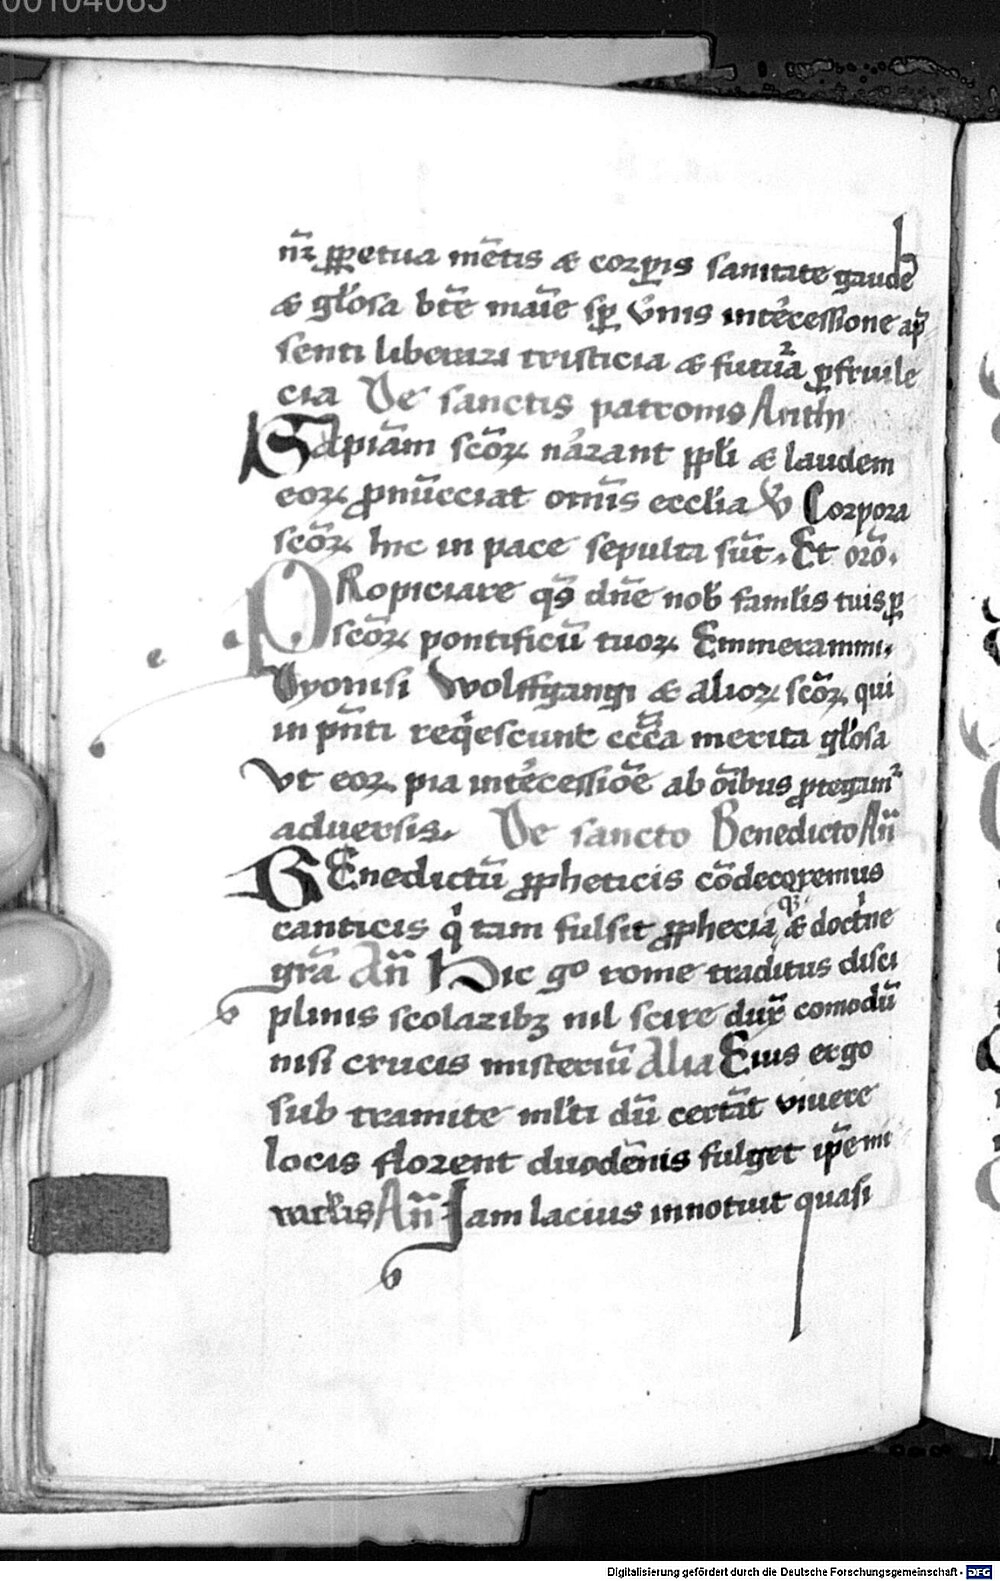 00104065
nr̄ ꝑpetua mētis ⁊ corꝑis sanitate gaudē
⁊ gl̓osa btē marīe sp̄ v̓nis int̓cessione a p̄
senti liberari tristicia ⁊ futura ꝑfrui le
cia De sanctis patronis Antīh
Sapiam̄ scōꝝ narrant ppl̓i ⁊ laudem
eoꝝ ꝓnūcciat om̄is eccl̓ia V̓ Corpora
scōꝝ hic in pace sepulta sūt. Et orō.
PRopiciare qs̄ dn̄e nob̓ faml̓is tuis ꝑ
scōꝝ pontificū tuoꝝ Emmerammi.
Dyonisi Wolffgangi ⁊ alioꝝ scōꝝ qui
in pn̄ti reqͥescunt ecc̄cia merita gl̓osa
vt eoꝝ pia int̓cessiōe ab oībus ꝓtegamr̄
aduersis. De sancto Benedicto An̄
BEnedictū ꝓpheticis cōdecoremus
canticis qͥ tam fulsit ꝓphecia qȝ ⁊ doctͥne
grā An̄ Hic gͦ rome traditus disci
plinis scolaribȝ nil scire dux̄ comodū
nisi crucis misteriū Alia Eius ergo
sub tramite ml̓ti dū certāt viuere
locis florent duodēnis fulget ip̄e mi
rackl̓is An̄ Iam lacius innotuit quasi
Digitalisierung gefördert durch die Deutsche Forschungsgemeinschaft - DFG